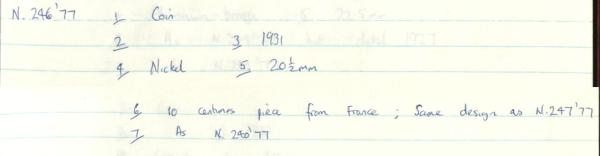 N. 246'77 1 Coin
2 3 1931
4 Nickel 5 20½mm
6 10 centimes pièce from France ; Same design as N.247'77
7 As N. 240'77